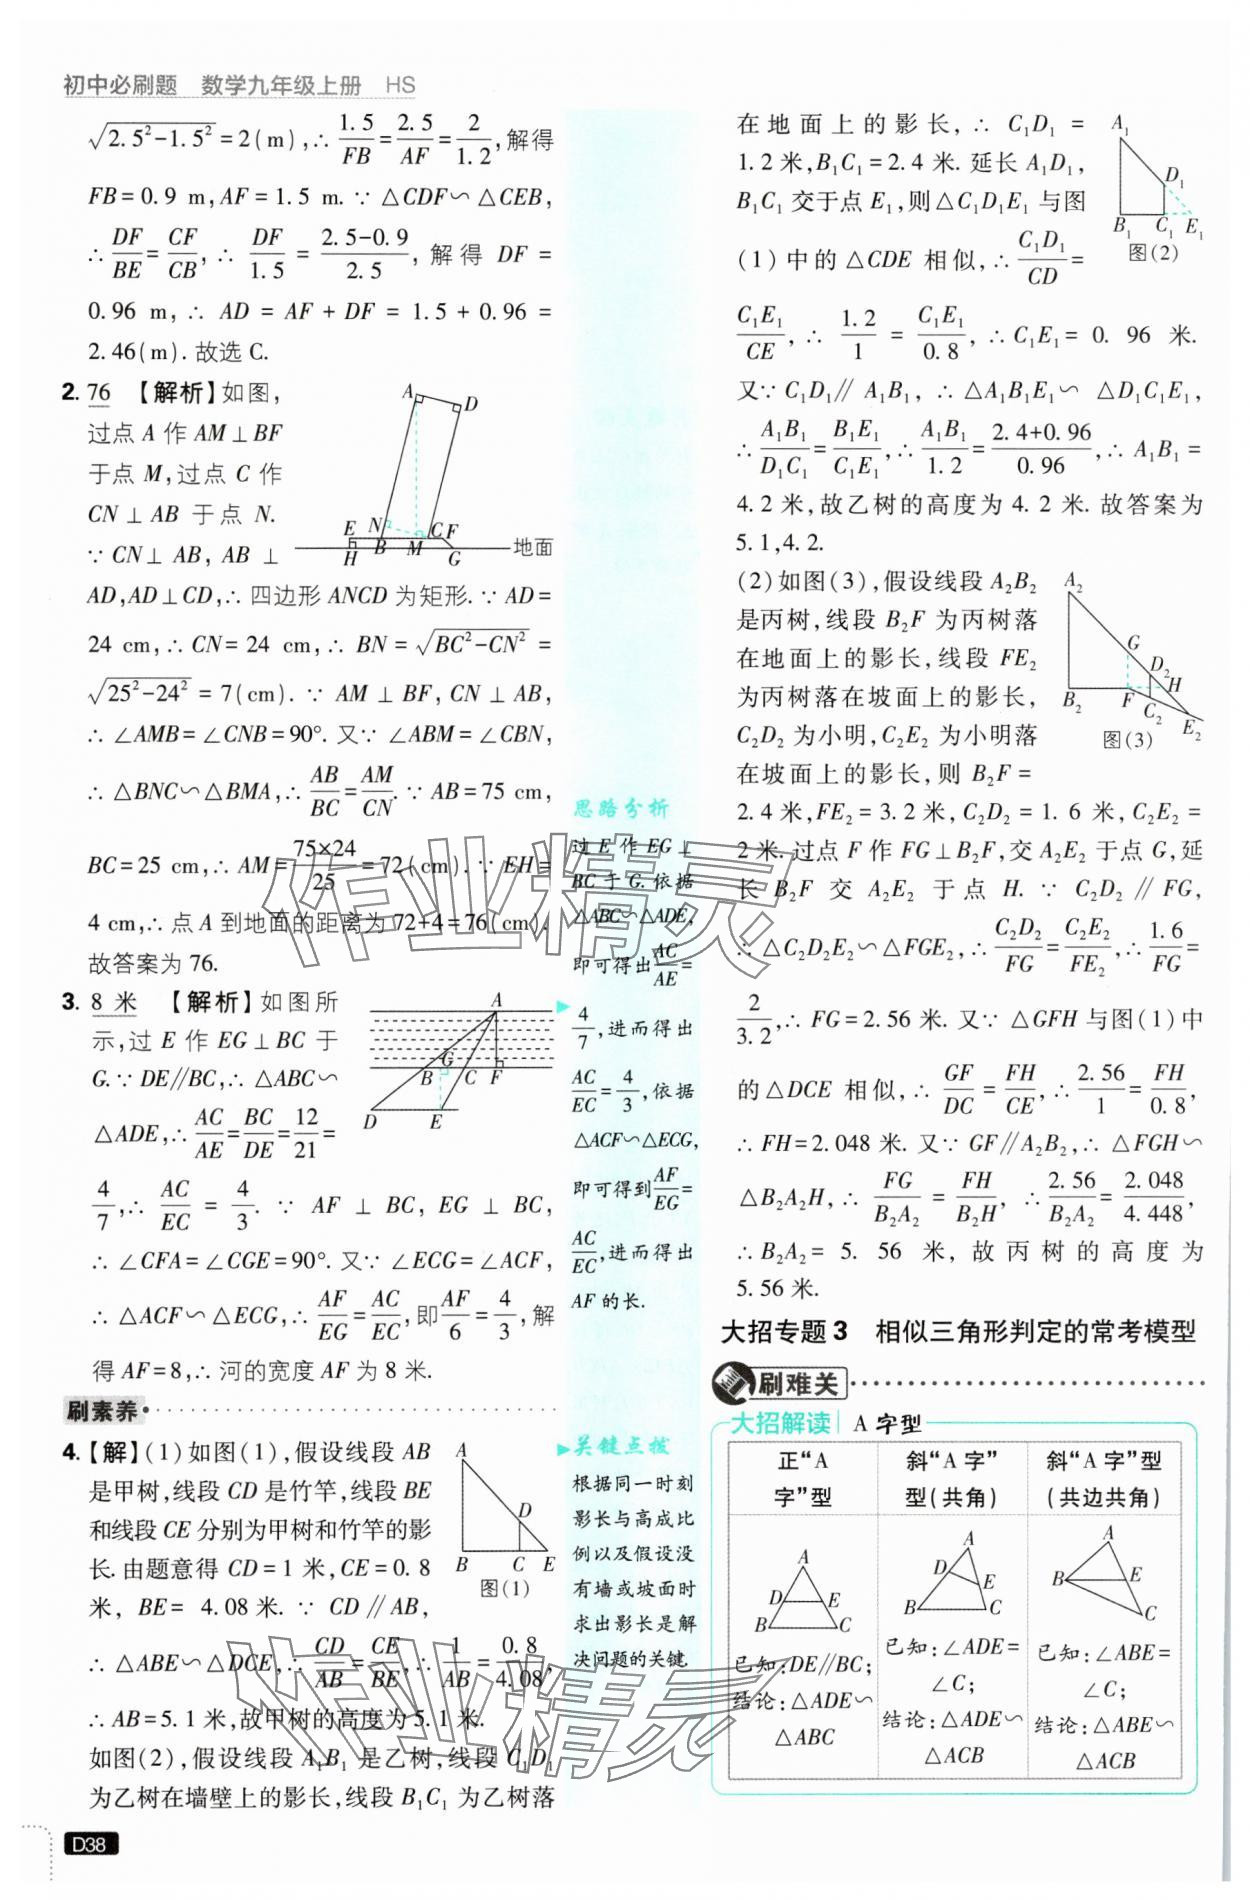 初中必刷题 数学九年级上册 HS
√(2.5²-1.5²)=2(m),∴ 1.5/FB=2.5/AF=2/1.2,解得
FB=0.9 m,AF=1.5 m.∵ △CDF∽△CEB,
∴ DF/BE=CF/CB,∴ DF/1.5=(2.5-0.9)/2.5,解得 DF=
0.96 m,∴ AD=AF+DF=1.5+0.96=
2.46(m).故选 C.
2. 76 【解析】如图,
过点 A 作 AM⊥BF
于点 M,过点 C 作
CN⊥AB 于点 N.
∵ CN⊥AB,AB⊥
AD,AD⊥CD,∴ 四边形 ANCD 为矩形.∵ AD=
24 cm,∴ CN=24 cm,∴ BN=√(BC²-CN²)=
√(25²-24²)=7(cm).∵ AM⊥BF,CN⊥AB,
∴ ∠AMB=∠CNB=90°.又∵ ∠ABM=∠CBN,
∴ △BNC∽△BMA,∴ AB/BC=AM/CN.∵ AB=75 cm,
BC=25 cm,∴ AM=75×24/25=72(cm).∵ EH=
4 cm,∴ 点 A 到地面的距离为 72+4=76(cm).
故答案为 76.
A D E N C F H B M G 地面
3. 8 米 【解析】如图所
示,过 E 作 EG⊥BC 于
G.∵ DE∥BC,∴ △ABC∽
△ADE,∴ AC/AE=BC/DE=12/21=
4/7,∴ AC/EC=4/3.∵ AF⊥BC,EG⊥BC,
∴ ∠CFA=∠CGE=90°.又∵ ∠ECG=∠ACF,
∴ △ACF∽△ECG,∴ AF/EG=AC/EC,即AF/6=4/3,解
得 AF=8,∴ 河的宽度 AF 为 8 米.
A G B C F D E
刷素养
4.【解】(1)如图(1),假设线段 AB
是甲树,线段 CD 是竹竿,线段 BE
和线段 CE 分别为甲树和竹竿的影
长.由题意得 CD=1 米,CE=0.8
米,BE=4.08 米.∵ CD∥AB,
∴ △ABE∽△DCE,∴ CD/AB=CE/BE,∴ 1/AB=0.8/4.08,
∴ AB=5.1 米,故甲树的高度为 5.1 米.
如图(2),假设线段 A₁B₁ 是乙树,线段 C₁D₁
为乙树在墙壁上的影长,线段 B₁C₁ 为乙树落
A D B C E
图(1)
D38
思路分析
过 E 作 EG⊥
BC 于 G.依据
△ABC∽△ADE,
即可得出AC/AE=
4/7,进而得出
AC/EC=4/3,依据
△ACF∽△ECG,
即可得到AF/EG=
AC/EC,进而得出
AF 的长.
关键点拨
根据同一时刻
影长与高成比
例以及假设没
有墙或坡面时
求出影长是解
决问题的关键.
在地面上的影长,∴ C₁D₁=
1.2 米,B₁C₁=2.4 米.延长 A₁D₁,
B₁C₁ 交于点 E₁,则△C₁D₁E₁ 与图
(1)中的△CDE 相似,∴ C₁D₁/CD=
C₁E₁/CE,∴ 1.2/1=C₁E₁/0.8,∴ C₁E₁=0.96 米.
又∵ C₁D₁∥A₁B₁,∴ △A₁B₁E₁∽△D₁C₁E₁,
∴ A₁B₁/D₁C₁=B₁E₁/C₁E₁,∴ A₁B₁/1.2=(2.4+0.96)/0.96,∴ A₁B₁=
4.2 米,故乙树的高度为 4.2 米.故答案为
5.1,4.2.
A₁ D₁ B₁ C₁ E₁
图(2)
(2)如图(3),假设线段 A₂B₂
是丙树,线段 B₂F 为丙树落
在地面上的影长,线段 FE₂
为丙树落在坡面上的影长,
C₂D₂ 为小明,C₂E₂ 为小明落
在坡面上的影长,则 B₂F=
2.4 米,FE₂=3.2 米,C₂D₂=1.6 米,C₂E₂=
2 米.过点 F 作 FG⊥B₂F,交 A₂E₂ 于点 G,延
长 B₂F 交 A₂E₂ 于点 H.∵ C₂D₂∥FG,
∴ △C₂D₂E₂∽△FGE₂,∴ C₂D₂/FG=C₂E₂/FE₂,∴ 1.6/FG=
2/3.2,∴ FG=2.56 米.又∵ △GFH 与图(1)中
的△DCE 相似,∴ GF/DC=FH/CE,∴ 2.56/1=FH/0.8,
∴ FH=2.048 米.又∵ GF∥A₂B₂,∴ △FGH∽
△B₂A₂H,∴ FG/B₂A₂=FH/B₂H,∴ 2.56/B₂A₂=2.048/4.448,
∴ B₂A₂=5.56 米,故丙树的高度为
5.56 米.
A₂ G D₂ H B₂ F C₂ E₂
图(3)
大招专题 3 相似三角形判定的常考模型
刷难关
大招解读 A 字型
正“A
字”型
斜“A 字”
型(共角)
斜“A 字”型
(共边共角)
A D E B C
A D E B C
A B E C
已知:DE∥BC;
结论:△ADE∽
△ABC
已知:∠ADE=
∠C;
结论:△ADE∽
△ACB
已知:∠ABE=
∠C;
结论:△ABE∽
△ACB
作业精灵
作业精灵